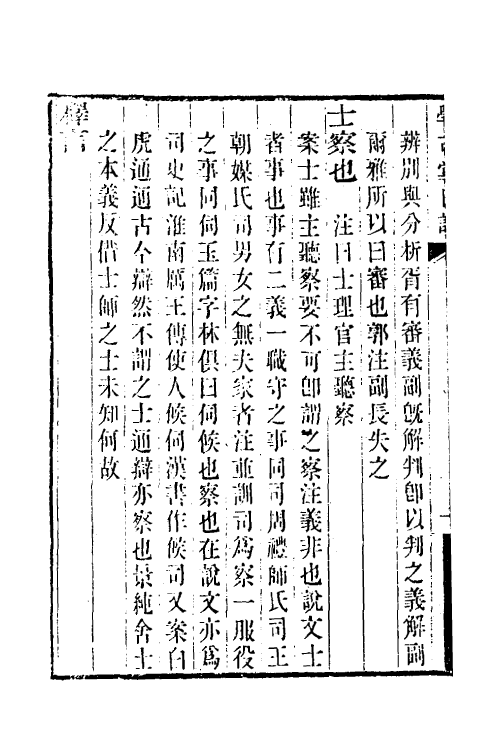 辨別與分析胥有審義副旣解判卽以判之義解副
爾雅所以曰審也郭注副長失之
士察也　注曰士理官主聽察
案士雖主聽察要不可卽謂之察注義非也說文士
者事也事有二義一職守之事同司周禮師氏司王
朝媒氏司男女之無夫家者注並訓司爲察一服役
之事同伺玉篇字林俱曰伺候也察也在說文亦爲
司史記淮南厲王傳使人候伺漢書作候司又案白
虎通通古今辯然不謂之士通辯亦察也景純舍士
之本義反借士師之士未知何故
釋言